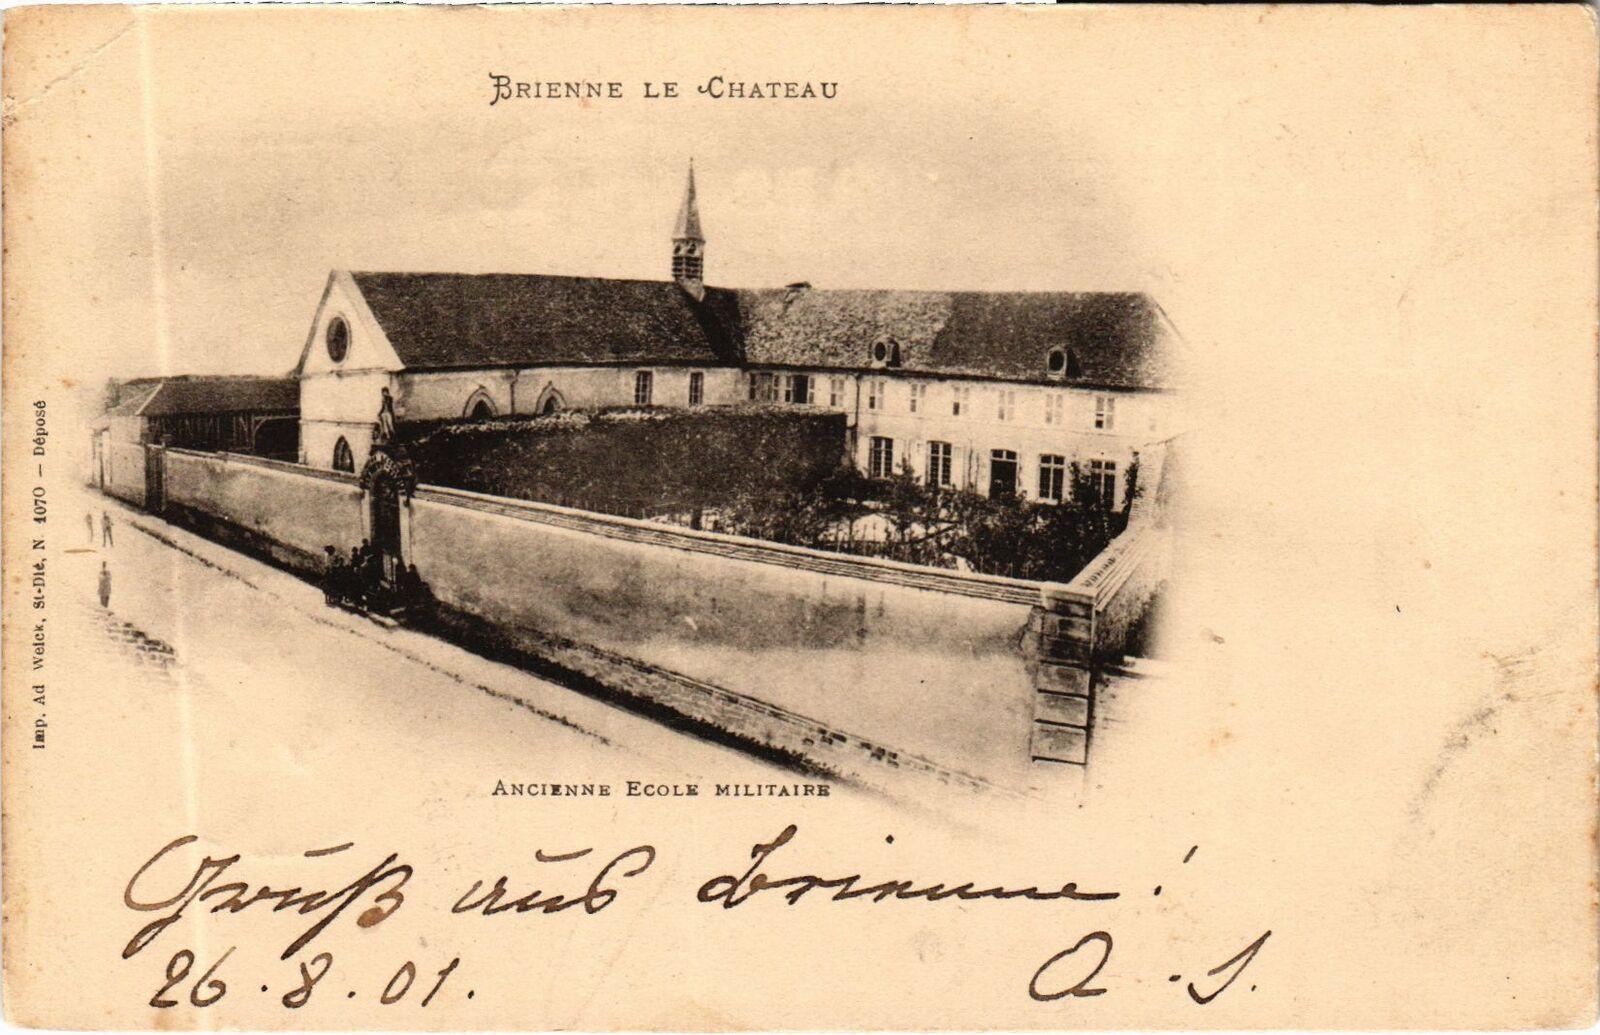 BRIENNE LE CHATEAU
Imp. Ad Weick, St-Dié, N 1070 — Déposé
ANCIENNE ECOLE MILITAIRE
Gruß aus Brienne!
26.8.01.
A.S.